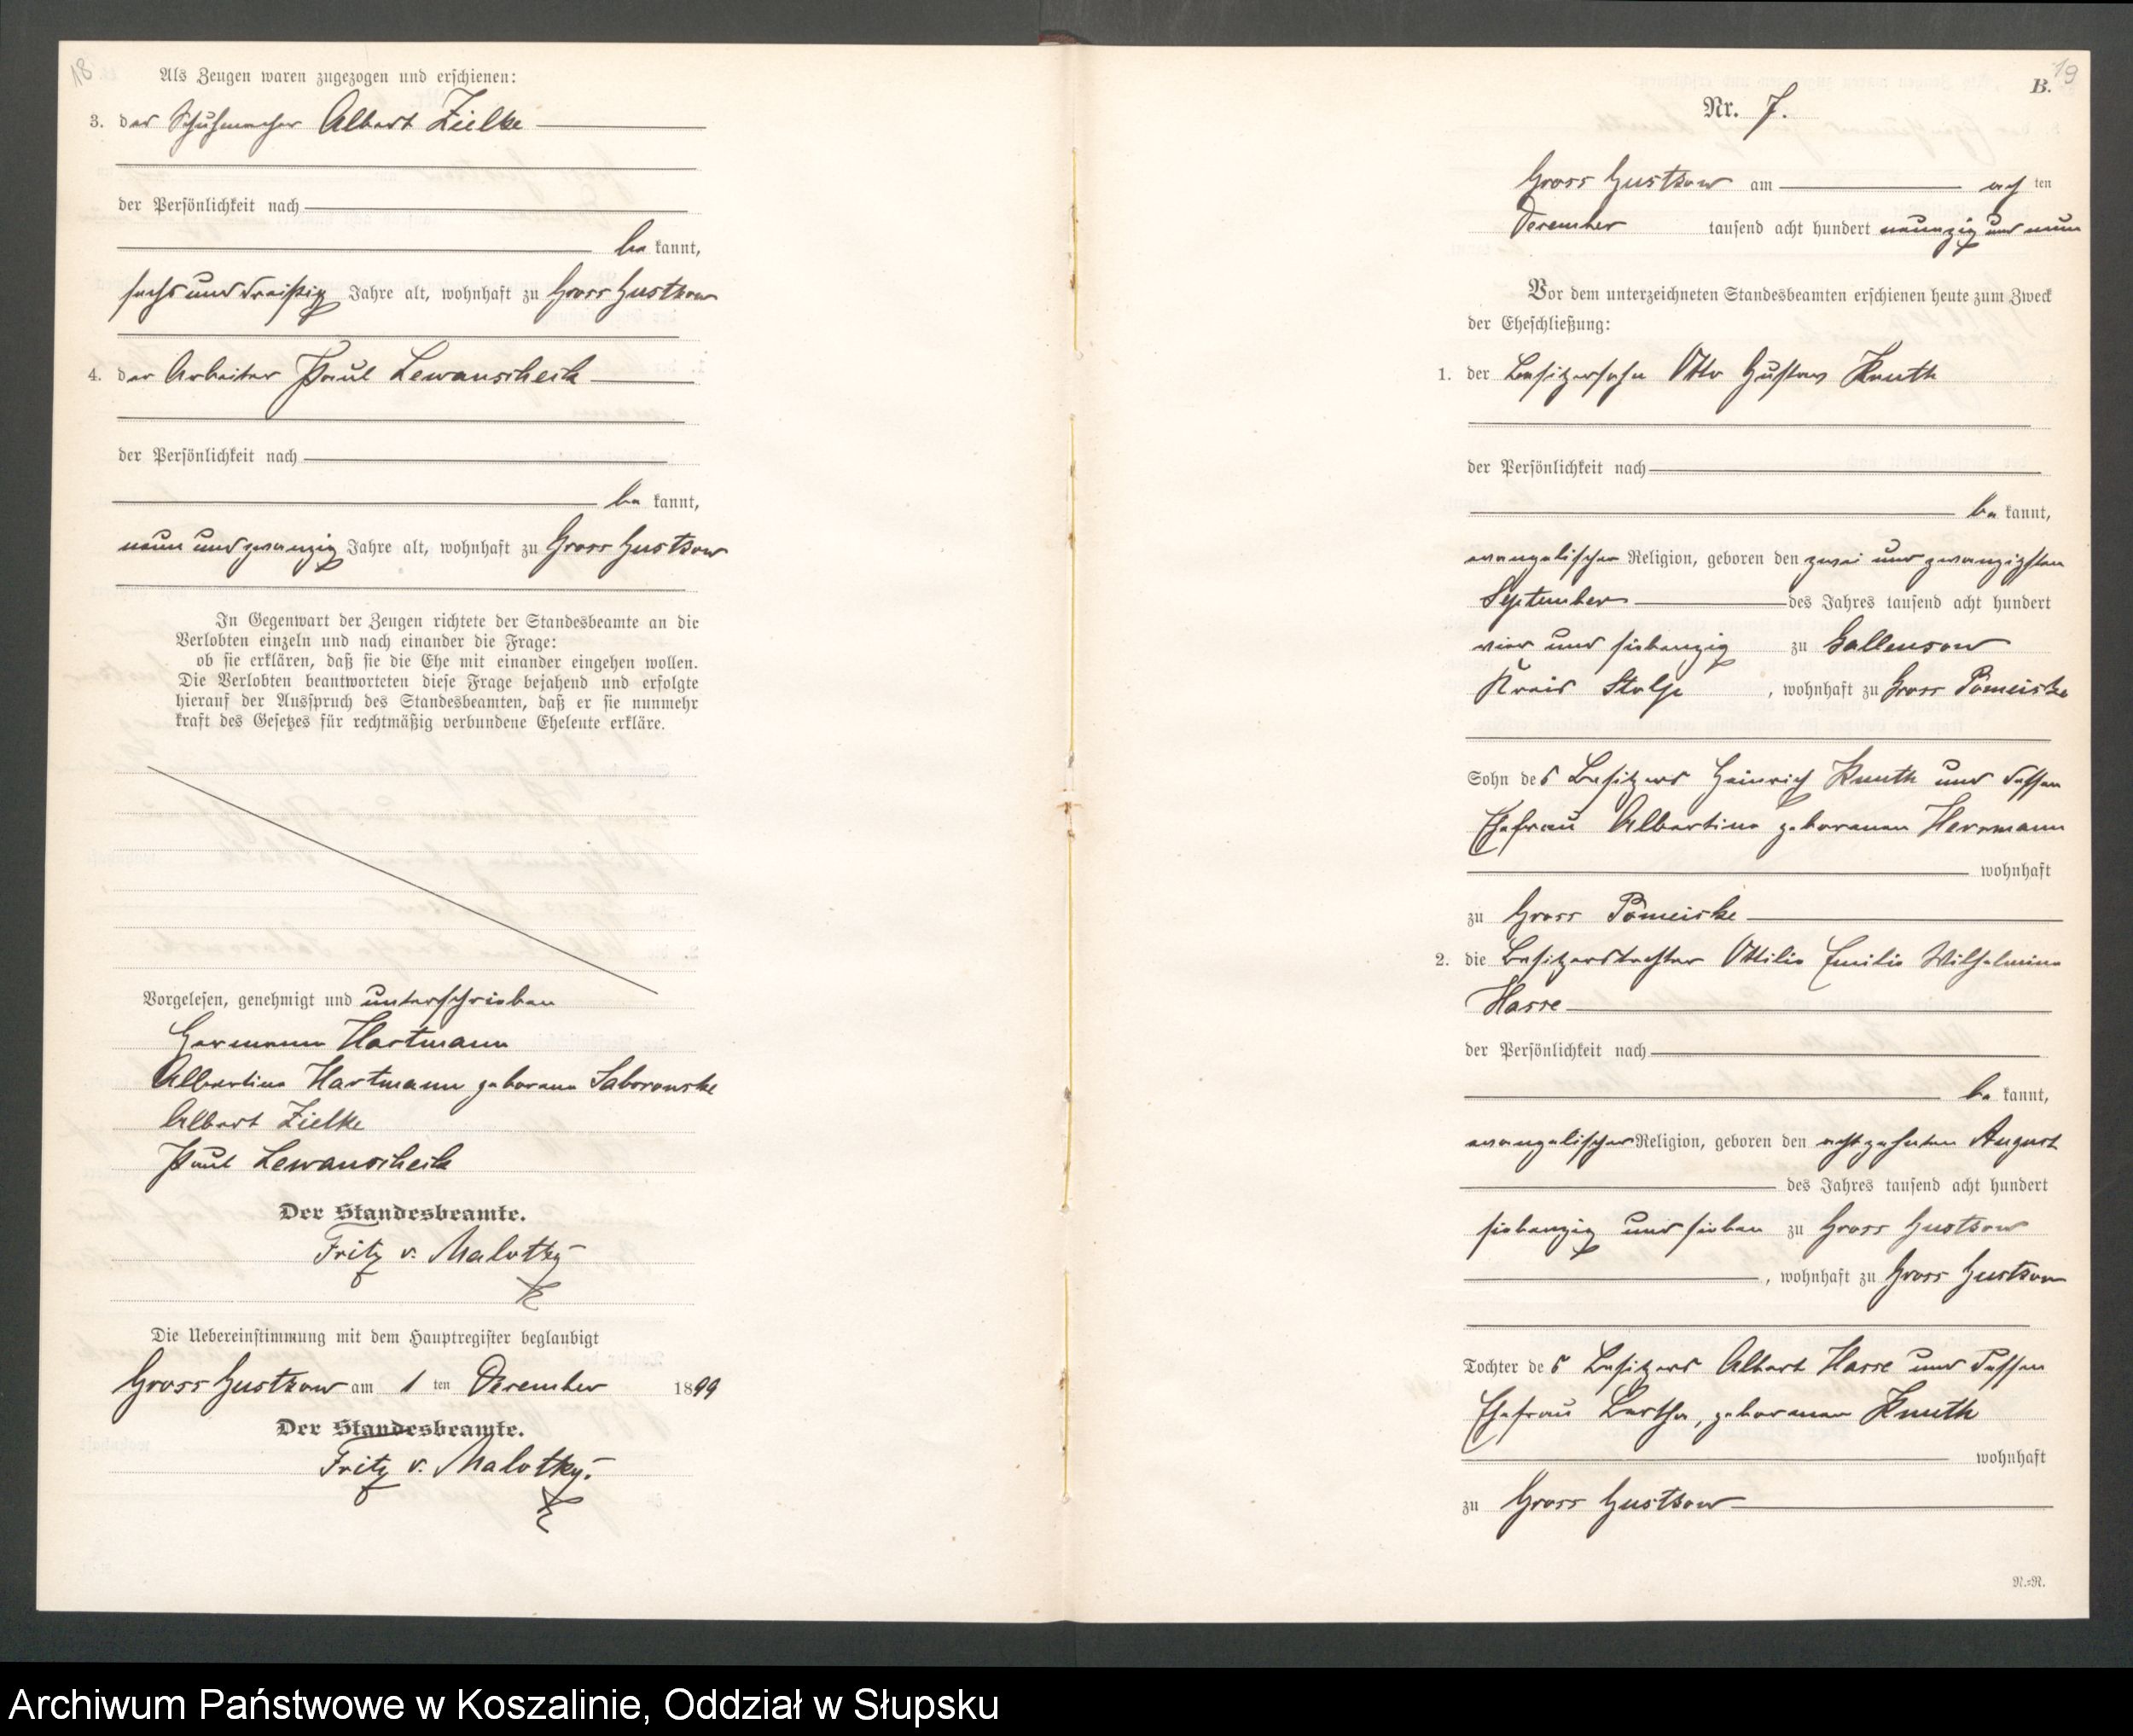 18
Als Zeugen waren zugezogen und erschienen:
3. der Schuhmacher Albert Zielke
der Persönlichkeit nach
be kannt,
sechs und dreißig Jahre alt, wohnhaft zu Gross Gustkow
4. der Arbeiter Paul Lewanscheck
der Persönlichkeit nach
be kannt,
neun und zwanzig Jahre alt, wohnhaft zu Gross Gustkow
In Gegenwart der Zeugen richtete der Standesbeamte an die
Verlobten einzeln und nach einander die Frage:
ob sie erklären, daß sie die Ehe mit einander eingehen wollen.
Die Verlobten beantworteten diese Frage bejahend und erfolgte
hierauf der Ausspruch des Standesbeamten, daß er sie nunmehr
kraft des Gesetzes für rechtmäßig verbundene Eheleute erkläre.
Vorgelesen, genehmigt und unterschrieben
Hermann Hartmann
Albertine Hartmann geborene
Albert Zielke
Paul Lewanscheck
Der Standesbeamte.
Fritz v. Malottky
Die Uebereinstimmung mit dem Hauptregister beglaubigt
Gross Gustkow am 1 ten December 1899
Der Standesbeamte.
Fritz v. Malottky.
19
B.
Nr. 7.
Gross Gustkow am acht ten
December tausend acht hundert neunzig und neun
Vor dem unterzeichneten Standesbeamten erschienen heute zum Zweck
der Eheschließung:
1. der Besitzersohn Otto Gustav Knuth
der Persönlichkeit nach
be kannt,
evangelischer Religion, geboren den zwei und zwanzigsten
September des Jahres tausend acht hundert
vier und siebenzig zu Gallensow
Kreis Stolp, wohnhaft zu Gross Pomeiske
Sohn des Besitzers Heinrich Knuth und dessen
Ehefrau Albertine geborenen Herrmann
wohnhaft
zu Gross Pomeiske
2. die Besitzerstochter Ottilie Emilie Wilhelmine
Hasse
der Persönlichkeit nach
be kannt,
evangelischer Religion, geboren den achtzehnten August
des Jahres tausend acht hundert
siebenzig und sieben zu Gross Gustkow
, wohnhaft zu Gross Gustkow
Tochter des Besitzers Albert Hasse und dessen
Ehefrau Bertha, geborenen Knuth
wohnhaft
zu Gross Gustkow
N.=N.
Archiwum Państwowe w Koszalinie, Oddział w Słupsku